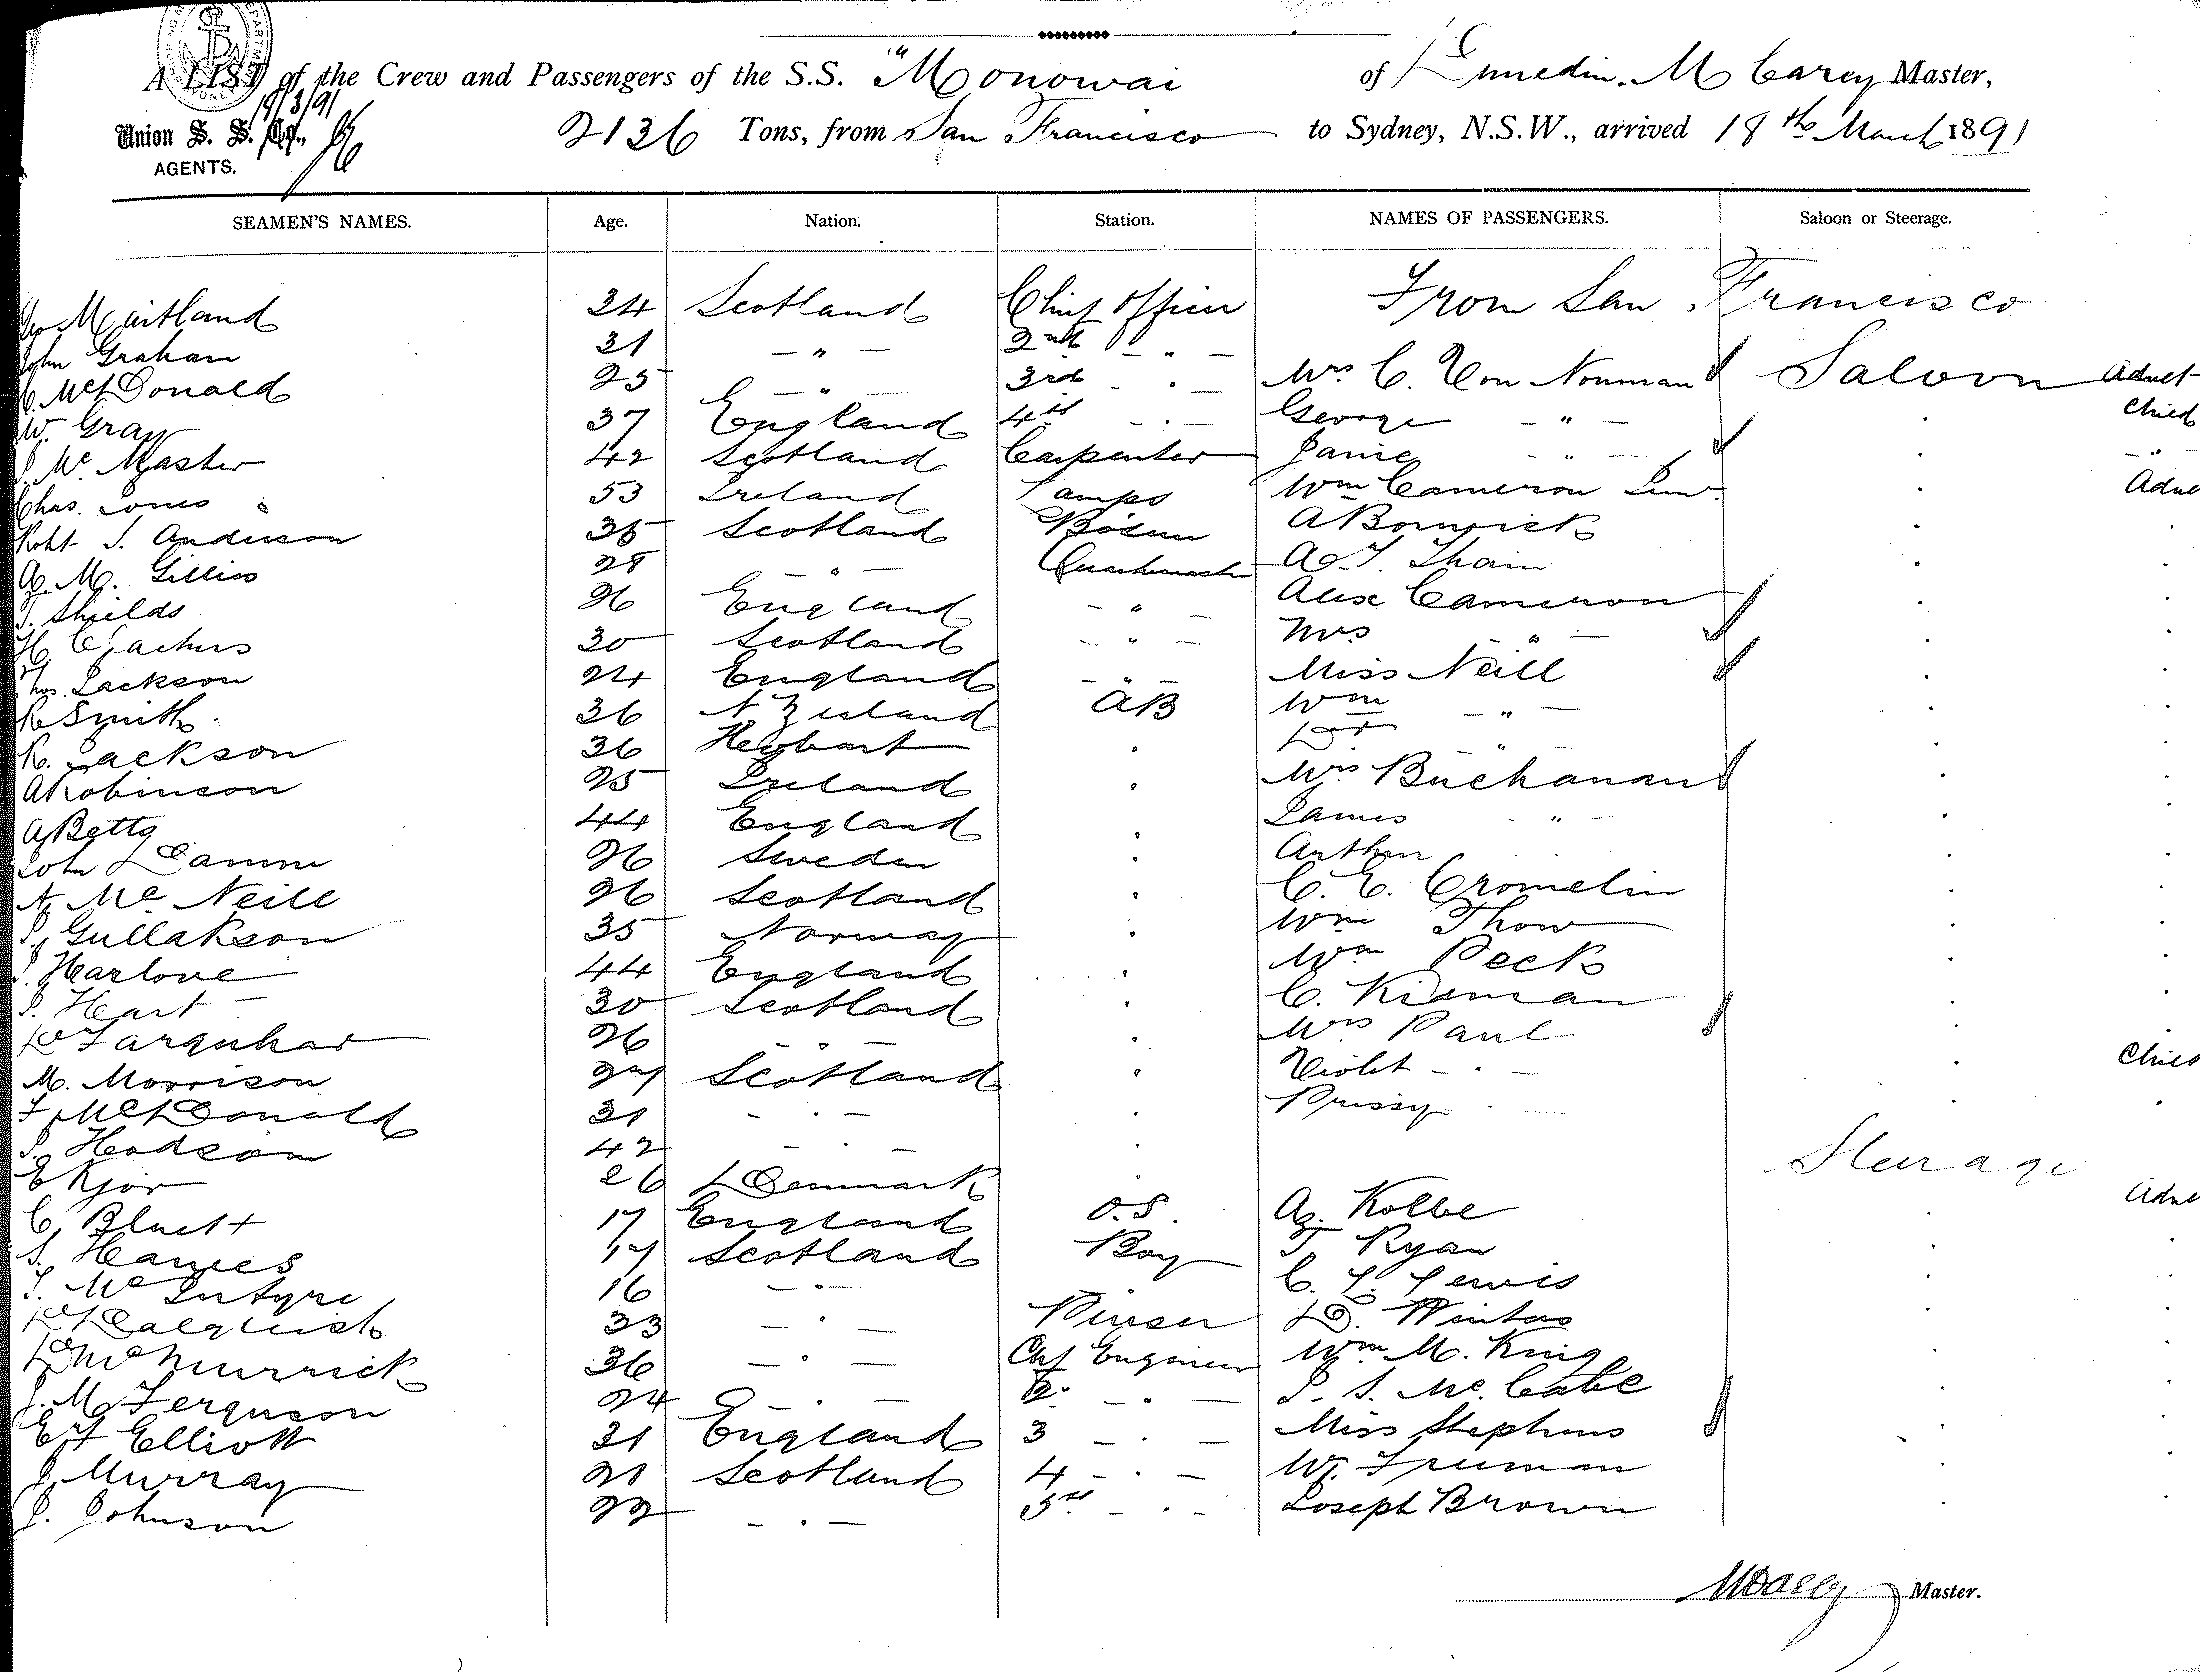 A LIST of the Crew and Passengers of the S.S. "Monowai of Dunedin. M Carey Master,
18/3/91
Union S. S. Co., AGENTS.
2136 Tons, from San Francisco to Sydney, N.S.W., arrived 18th March 1891
SEAMEN'S NAMES. Age. Nation. Station. NAMES OF PASSENGERS. Saloon or Steerage.
Geo Maitland 24 Scotland Chief Officer From San Francisco
John Graham 31 — " — 2nd — " —
C. McDonald 25 — " — 3rd " — Mrs C. Von Norman Saloon Adult
W. Gray 37 England 4th — " — George — " — Child
J. Mc Master 42 Scotland Carpenter Janie — " — "
Chas. Jones 53 Ireland Lamps Wm Cameron Junr. Adul
Robt J. Anderson 35 Scotland Bosun A Borwick
A. M. Gillies 28 — " — Quartermaster A. T. Thain
T. Shields 26 England — " — Alex Cameron
H 30 Scotland — " — Mrs — " —
Thos. Jackson 24 England — " — Miss Neill
R Smith 36 N Zealand AB Wm — " —
R. Jackson 36 Hobart " "
A Robinson 25 Ireland " Mrs Buchanan
A Betty 44 England " James " —
John Damm 26 Sweden " Arthur
A Mc Neill 26 Scotland " C. E. Cromelin
P. Gullakson 35 Norway " Wm Thow
J. Harlove 44 England " Wm Peck
J. Hart 30 Scotland " C. Kidman
D Farquhar 26 — " — " Mrs Paul
M. Morrison 27 Scotland " Violet — " — Child
F McDonald 31 — " — " Prissy
J. Hodson 42 — " — " Steerage
E Kjor 26 Denmark " Adul
C. Bluett 17 England O.S. A. Kolbe
J. Hames 17 Scotland Boy T Ryan
J. Mc Intyre 16 — " C. L. Lewis
D Dalquish 33 — " — Purser D. Winters
D McMurrick 36 — " — Chf Engineer Wm M. King
J. M. Ferguson 24 — " — 2 — " — J. S. Mc. Cabe
E Elliott 31 England 3 — " — Miss Stephens
J. Murray 21 Scotland 4 — " — W. Truman
J. Johnson 22 — " — 5th — " — Joseph Brown
M Carey Master.